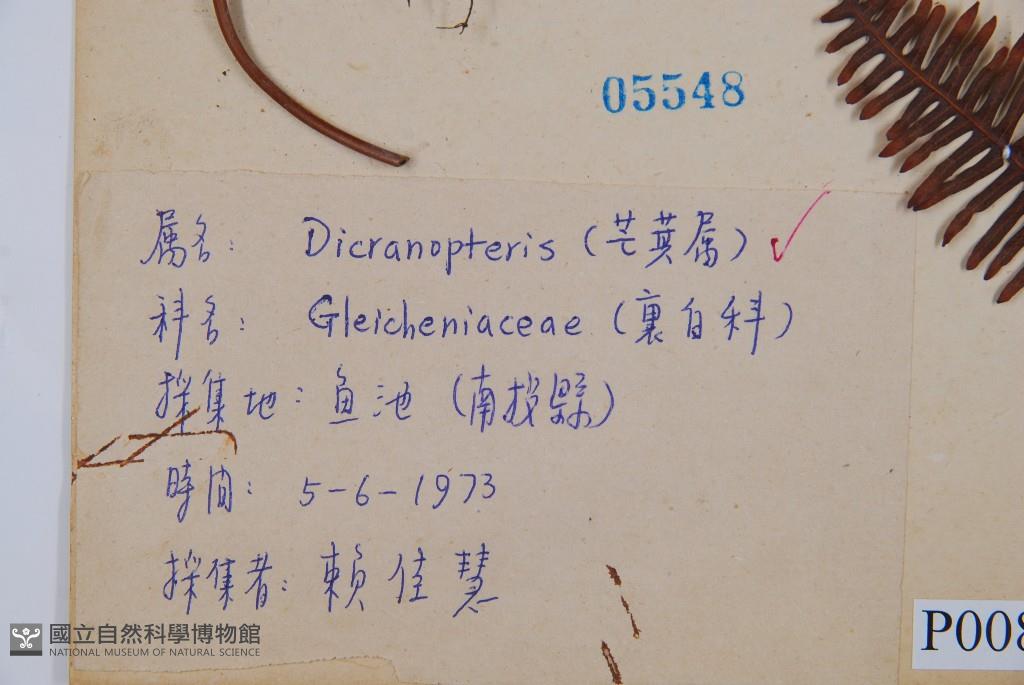 05548
属名: Dicranopteris (芒萁属) ✓
科名: Gleicheniaceae (裏白科)
採集地: 魚池 (南投縣)
時间: 5-6-1973
採集者: 賴佳慧
P008
國立自然科學博物館
NATIONAL MUSEUM OF NATURAL SCIENCE